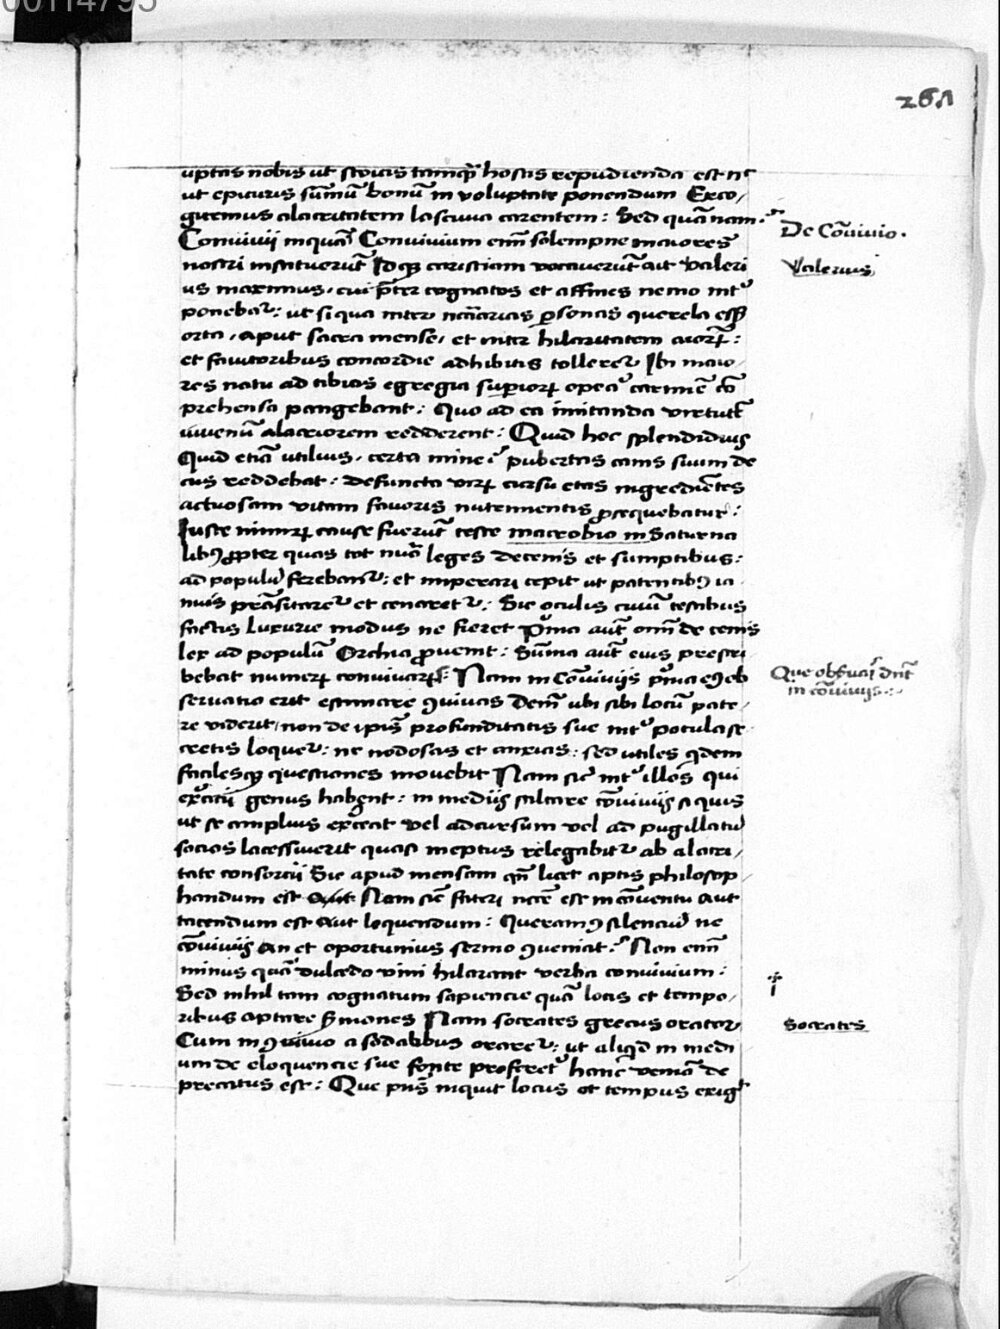 00114795
261
uptas nobis ut stoicis tamq̄ hostis repudienda est nᶜ
ut epicuris sūmū bonū in voluptate ponendum Exco/
gitemus alacritatem lasciuia carentem: Sed quā nam
De Cōuiuio.
Conuiuij inquā Conuiuium enī solempne maiores
nostri instituerūt Idq̄ caristiam vocauerūt ait Valeri
Valerius
us maximus, cui p̄ter cognatos et affines nemo intᵉ
ponebatᵉ: ut si qua inter nccārias ꝑsonas querela eēt
orta, aput sacra mense, et inter hilaritatem aīorꝝ:
et fautoribus concordie adhibitis tolleretᵉ Ibi maio/
res natu ad tibias egregia superiorꝝ opera carmīe cō
prehensa pangebant: Quo ad ea imitanda virtute
iuuenū alacriorem redderent: Quid hoc splendidius
Quid etiā utilius, certamine pubertas canis suum de
cus reddebat: defuncta virꝝ cursu etas ingrediētes
actuosam vitam fauoris nutrimentis ꝓsequebatur:
Iuste nimirꝝ cause fuerūt teste macrobio in Saturna
libꝰ ꝓpter quas tot nūa leges de cenis et sumptibus:
ad populū ferebantᵉ: et imperari cepit ut patentibꝰ ia
nuis prāsitaretᵉ et cenaretᵉ: Sic oculis ciuiū testibus
factis Luxurie modus ne fieret Prima aūt oīm de cenis
lex ad populū Orchia ꝓuenit: Sūma aūt eius prescri
bebat numerꝝ conuiuarꝝ: Nam in Cōuiuijs p̄ma ꝯ ob
Que obseruari dn̄t
in cōuiuijs:-
seruatio erit estimare ꝯuiuas Dem̄ ubi sibi locū pate
re viderit, non de ipīs profunditatis sue intᵉ pocula se
cretis loquetᵉ: ne nodosas et anxias: sed utiles qdem
facilesq̄ questiones mouebit Nam sic intᵉ illos qui
exercitij genus habent: in medijs saltare cōuiuijs si quis
ut se amplius exerceat vel ad cursum vel ad pugillatū
socios lacessiuerit quasi ineptus relegabitᵉ ab alacri/
tate consorcij Sic apud mensam qn̄ licet aptis philosop
handum est Nam sic fateri ncc̄e est in cōuentu aut
tacendum est aut loquendum: Queramꝰ silenciū ne
cōuiuijs an et oportunius sermo ꝯueniat: Non enī
minus quā dulcedo vini hilarant verba conuiuium:
Sed nihil tam cognatum sapiencie quā locis et tempo/
ribus aptare sermones Nam socrates grecus orator
Socrates
Cum in ꝯuiuio a sodalibus oraretᵉ: ut aliqd in medi
um de eloquencie sue fonte proferretᵉ hanc veniā de
precatus est: Que pn̄s inquit locus et tempus exigit